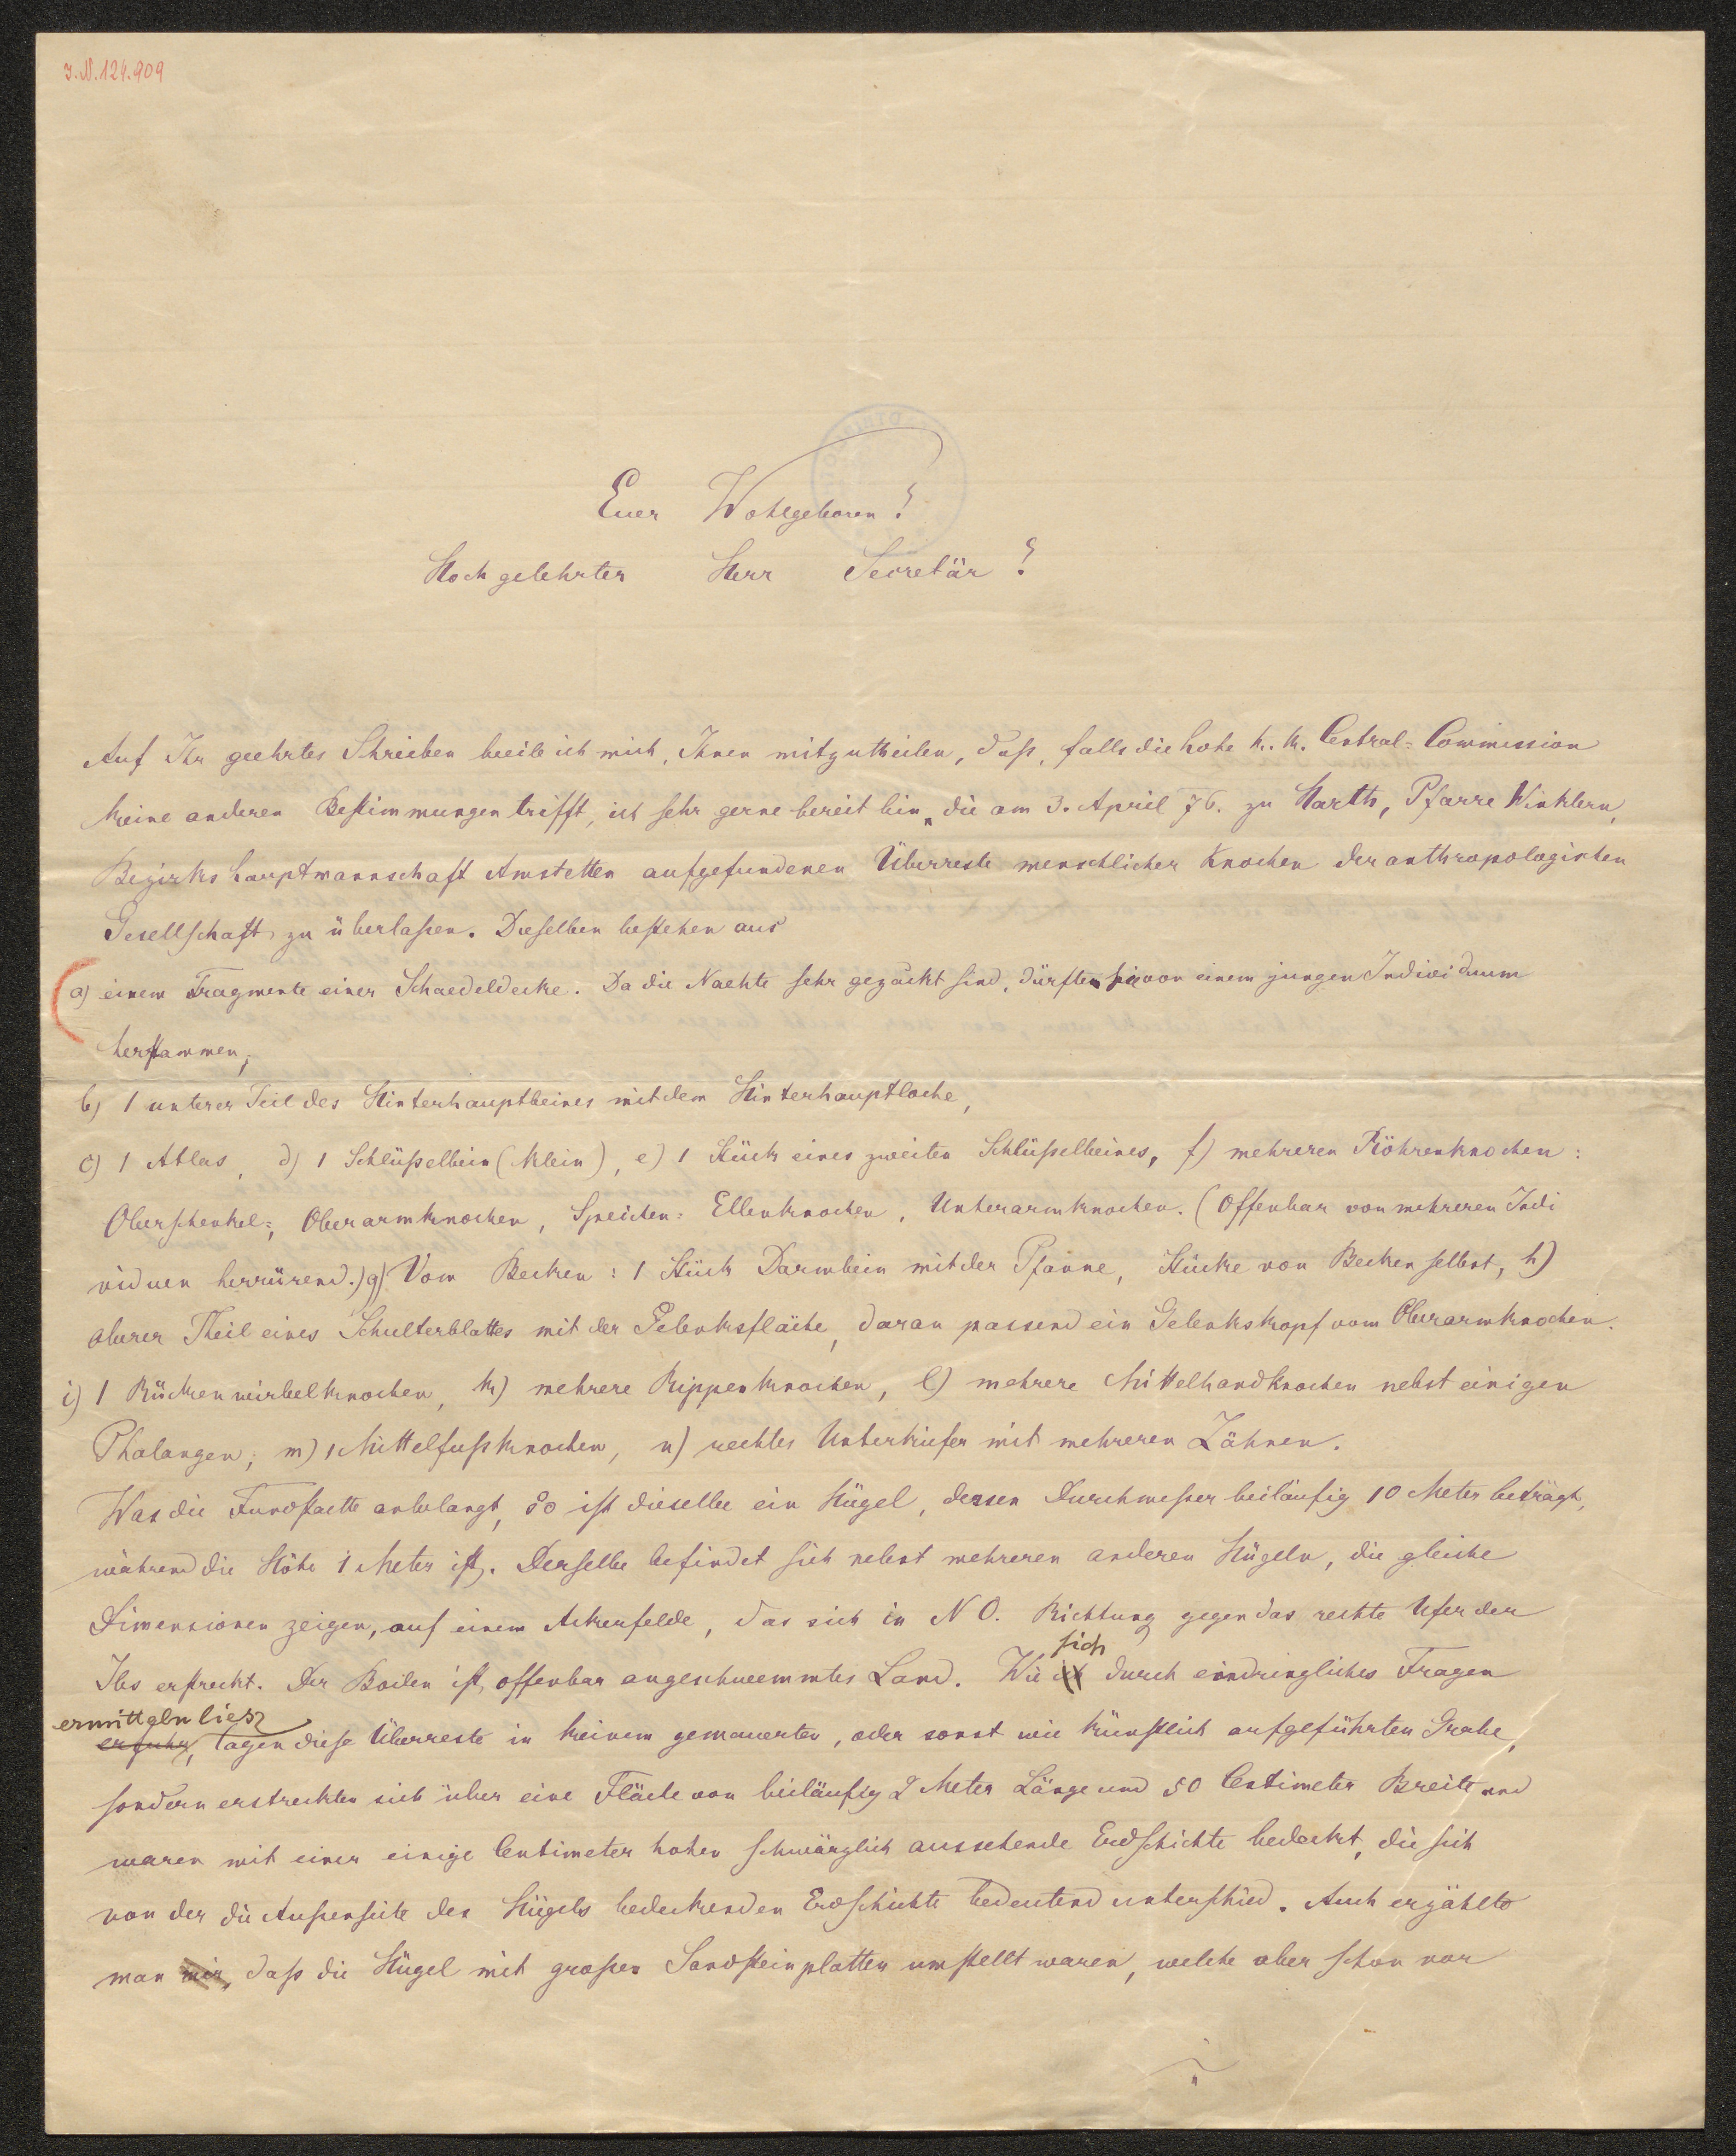 J.N. 124.909
Euer Wohlgeboren!
Hochgelehrter Herr Secretär!
Auf Ihr geehrtes Schreiben beeile ich mich, Ihnen mitzutheilen, daß, falls die hohe k. k. Central-Commission
keine anderen Bestimmungen trifft, ich sehr gerne bereit bin, die am 3. April 76. zu Harth, Pfarre Winklern,
Bezirkshauptmannschaft Amstetten aufgefundenen Überreste menschlicher Knochen der anthropologischen
Gesellschaft zu überlaßen. Dieselben bestehen aus
a) einem Fragmente einer Schaedeldecke. Da die Naehte sehr gezackt sind, dürften sie von einem jungen Individuum
herstammen;
b) 1 unterer Teil des Hinterhauptbeines mit dem Hinterhauptloche,
c) 1 Atlas, d) 1 Schlüßelbein (klein), e) 1 Stück eines zweiten Schlüßelbeines, f) mehreren Röhrenknochen:
Oberschenkel-, Oberarmknochen, Speichen- Ellenknochen, Unterarmknochen. (Offenbar von mehreren Indi
viduen herrürend.) g) Vom Becken: 1 Stück Darmbein mit der Pfanne, Stücke von Becken selbst, h)
oberer Theil eines Schulterblattes mit der Gelenksfläche, daran passend ein Gelenkskopf vom Oberarmknochen.
i) 1 Rückenwirbelknochen, k) mehrere Rippenknochen, l) mehrere Mittelhandknochen nebst einigen
Phalangen; m) 1 Mittelfußknochen, n) rechter Unterkiefer mit mehreren Zähnen.
Was die Fundstaette anbelangt, so ist dieselbe ein Hügel, dessen Durchmeßer beiläufig 10 Meter beträgt,
während die Höhe 1 Meter ist. Derselbe befindet sich nebst mehreren anderen Hügeln, die gleiche
Dimensionen zeigen, auf einem Ackerfelde, das sich in N O. Richtung gegen das rechte Ufer der
Ibs erstreckt. Der Boden ist offenbar angeschwemmtes Land. Wie ich sich durch eindringliches Fragen
erfuhr, ermitteln liesz, lagen diese Überreste in keinem gemauerten, oder sonst wie künstlich aufgeführten Grabe,
sondern erstreckten sich über eine Fläche von beiläufig 2 Meter Länge und 50 Centimeter Breite und
waren mit einer einige Centimeter hohen schwärzlich aussehende Erdschichte bedeckt, die sich
von der die Außenseite des Hügels bedeckenden Erdschichte bedeutend unterschied. Auch erzählte
man mir, daß die Hügel mit großen Sandsteinplatten umstellt waren, welche aber schon vor